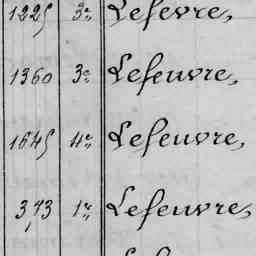 1225 3e Lefevre,
1360 3e Lefeuvre,
1645 4e Lefeuvre,
3,73 1re Lefeuvre,